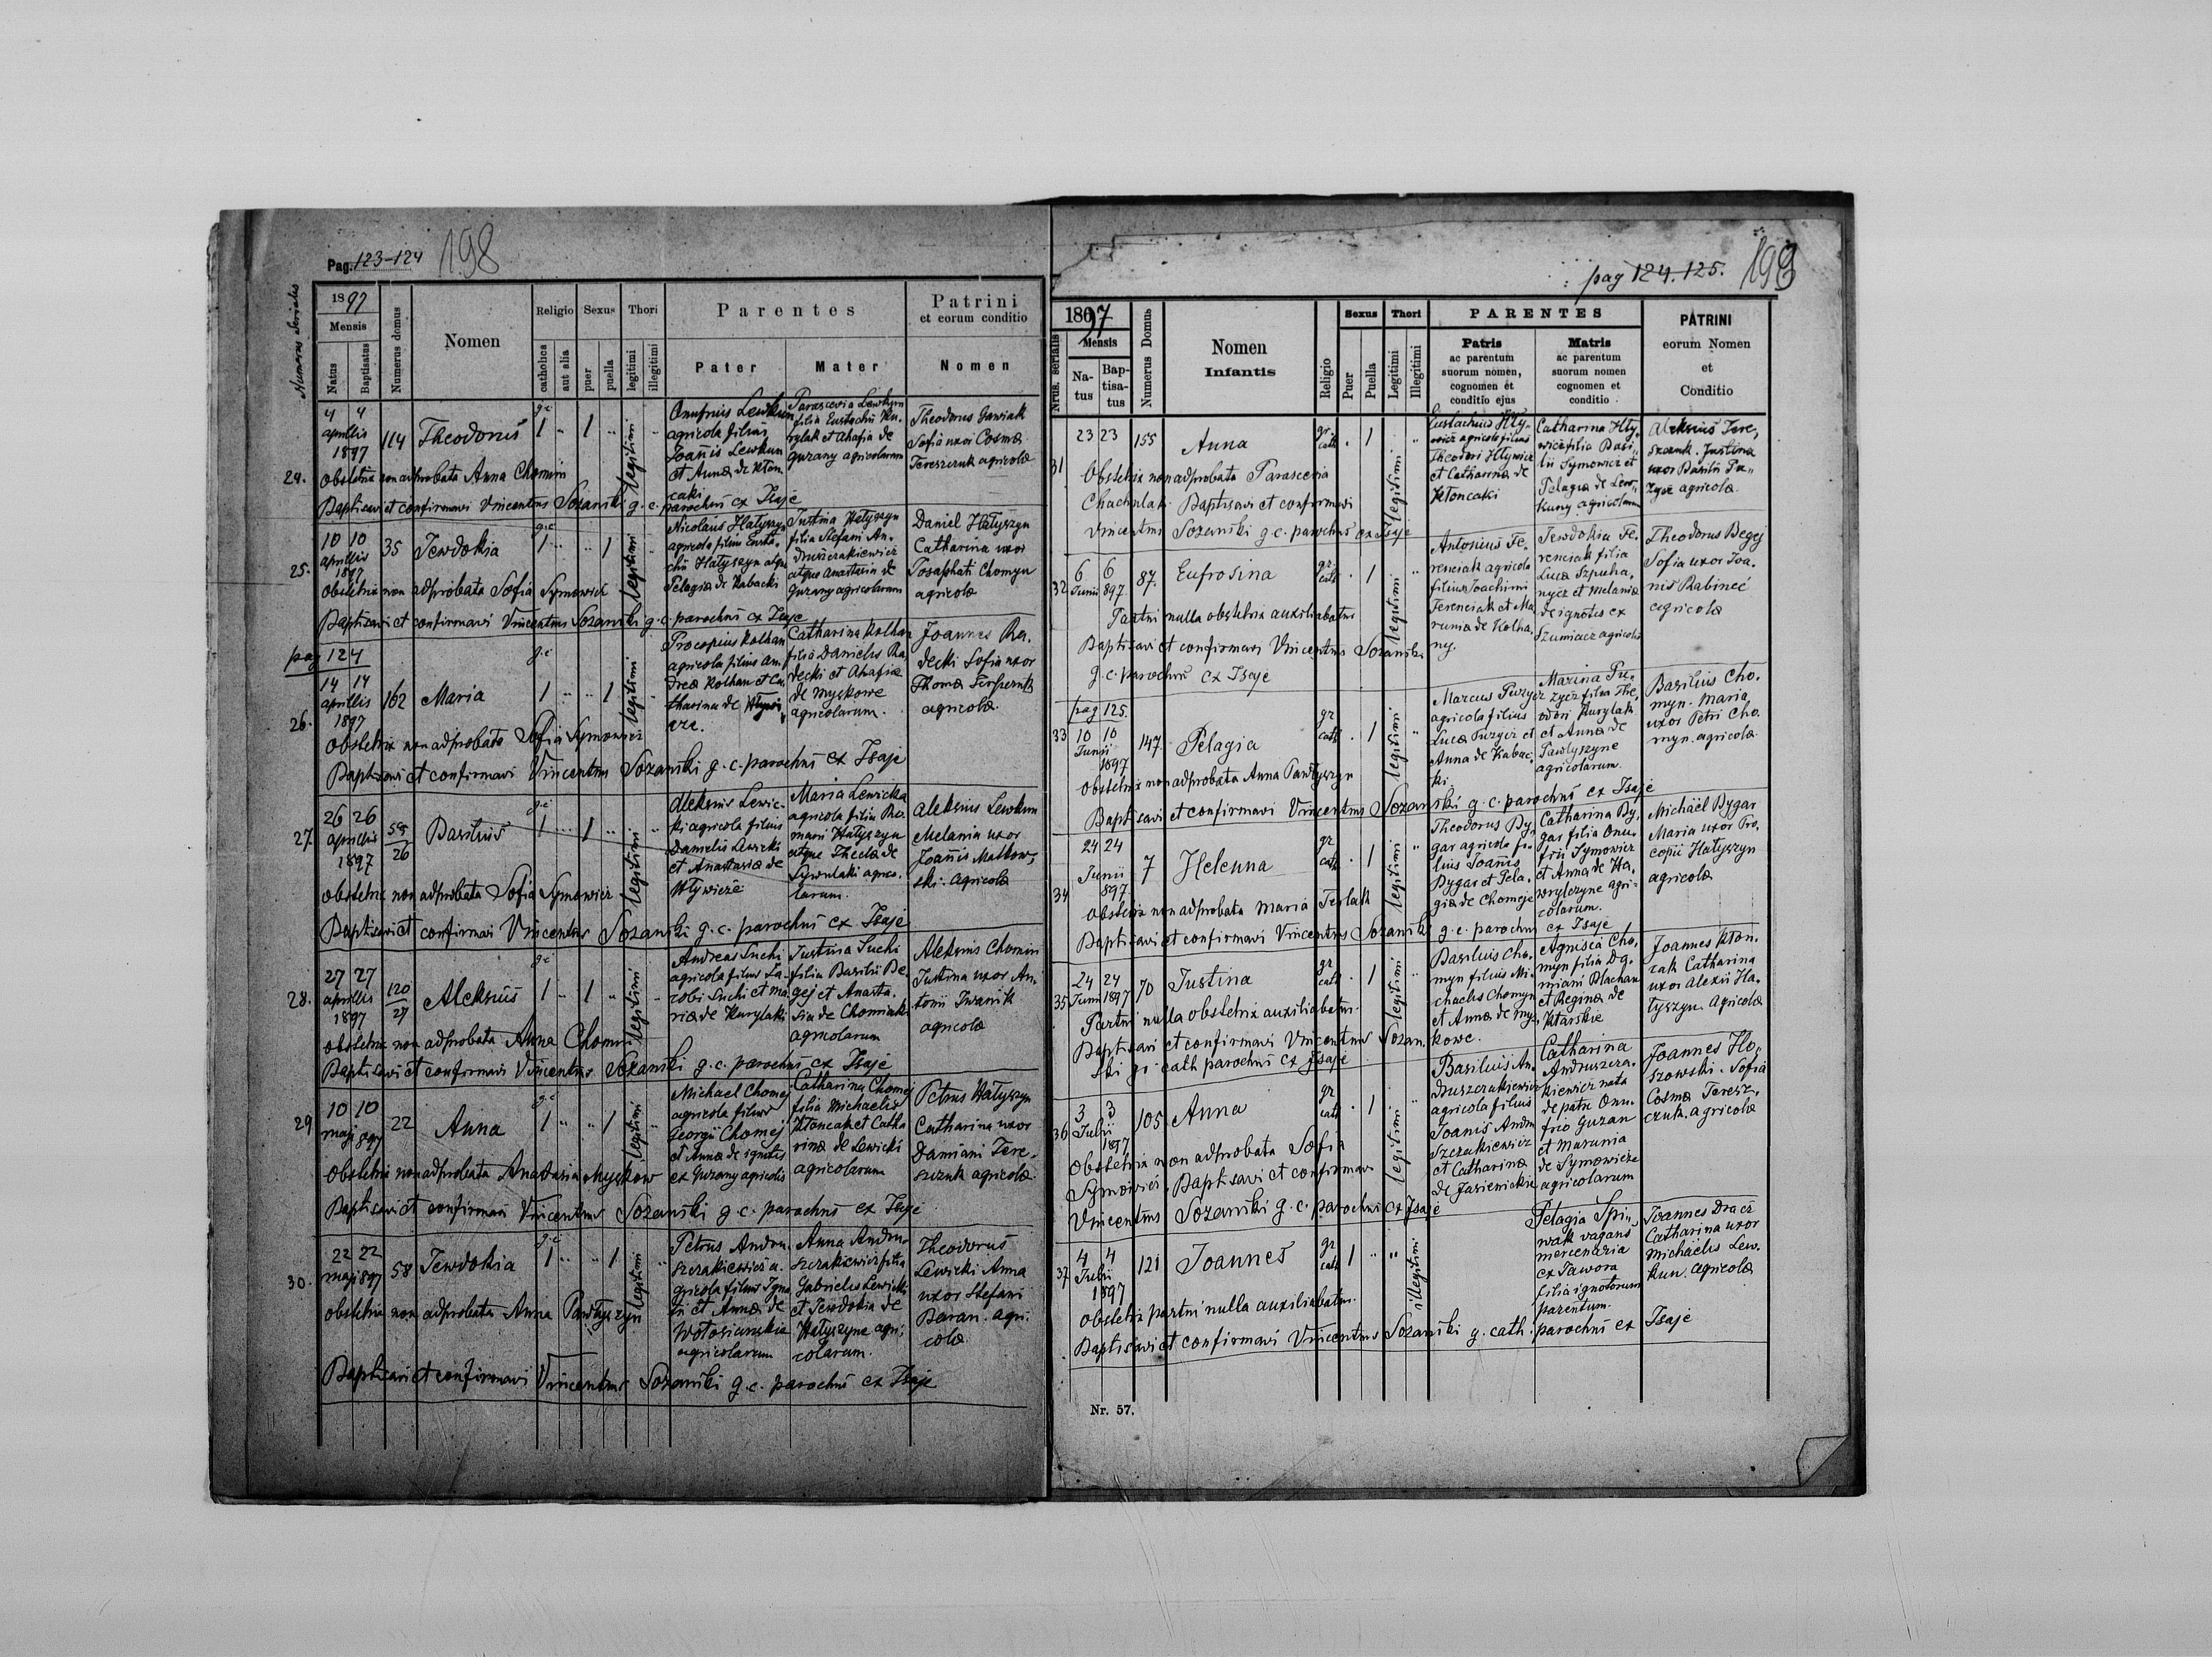 Pag. 123-124 198
Numerus serialis
1897
Mensis
Natus
Baptisatus
Numerus domus
Nomen
Religio
catholica
aut alia
Sexus
puer
puella
Thori
legitimi
illegitimi
Parentes
Pater
Mater
Patrini
et eorum conditio
Nomen
24.
4 4
aprilis
1897
114
Theodorus
g.c
1 " 1 "
legitimi
Onufrius Lewkun
agricola filius
Joannis Lewkun
et Anna de Kłon
caki
Parascevia Lewkun
filia Eustachii Ku-
rylak et Ahafia de
Guzany agricolarum
Theodorus Gawiak
Sofia uxor Cosmæ
Tereszczuk agricolæ
Obstetrix non adprobata Anna Chomin
Baptisavi et confirmavi Vincentius Sozański g.c. parochus ex Isaje
25.
10 10
aprilis
1897
35
Jewdokia
g.c
1 " " 1
legitimi
Nicolaus Hatyszyn
agricola filius Eusta-
chii Hatyszyn atque
Pelagia de Kabacki
Justina Hatyszyn
filia Stefani An-
druszczakiewicz
atque Anastasia de
Guzany agricolarum
Daniel Hatyszyn
Catharina uxor
Josaphati Chomyn
agricolæ
Obstetrix non adprobata Sofia Symowicz
Baptisavi et confirmavi Vincentius Sozanski g.c. parochus ex Isaje
pag 124
26.
14 14
aprilis
1897
162
Maria
g.c
1 " " 1
legitimi
Procopius Kolhan
agricola filius An-
dreæ Kolhan et Ca-
tharina de
Catharina Kolhan
filia Danielis Ra-
decki et Ahafiæ
de Myskowe
agricolarum.
Joannes Ra-
decki Sofia uxor
Thomæ
agricolæ.
Obstetrix non adprobata Sofia Symowicz
Baptisavi et confirmavi Vincentius Sozanski g.c. parochus ex Isaje
27.
26 26
aprilis
1897
26
Basilius
g.c
1 " 1 "
legitimi
Aleksius Lewic-
ki agricola filius
Danielis Lewicki
et Anastasia de
Hływicze
Maria Lewicka
agricola filia Ro-
mani Hatyszyn
atque Thecla de
agrico-
larum.
Aleksius Lewkun
Melania uxor
Joannis Matkow-
ski. Agricolæ
Obstetrix non adprobata Sofia Symowicz
Baptisavi et confirmavi Vincentius Sozanski g.c. parochus ex Isaje
28.
27 27
aprilis
1897
120
27
Aleksius
g.c
1 " 1 "
legitimi
Andreas Suchi
agricola filius Ja-
cobi Suchi et Ma-
ria de Kurylaki
Justina Suchi
filia Basilii Be-
gej et Anasta-
sia de Chomiak
agricolarum
Aleksius Chomin
Justina uxor An-
tonii Iwanik
agricolæ
Obstetrix non adprobata Anna Chomin
Baptisavi et confirmavi Vincentius Sozanski g.c. parochus ex Isaje
29
10 10
maji 897
22
Anna
g.c
1 " " 1
legitimi
Michael Chomej
agricola filius
Georgii Chomej
et Anna de ignotis
ex Guzany agricolis
Catharina Chomej
filia Michaelis
Kłoncak et Catha
rinæ de Lewicki
agricolarum
Petrus Hatyszyn
Catharina uxor
Damiani Tere-
szczuk agricolæ
Obstetrix non adprobata Anastasia Myskow
Baptisavi et confirmavi Vincentius Sozański g.c. parochus ex Isaje
30.
22 22
maji 897
58
Jewdokia
g.c
1 " " 1
legitimi
Petrus Andru-
szczakiewicz a-
gricola filius Igna-
tii et Anna de
Wołosianskie
agricolarum
Anna Andru-
szczakiewicz filia
Gabrielis Lewicki
et Jewdokia de
Hatyszyne agri-
colarum.
Theodorus
Lewicki Anna
uxor Stefani
Baran. agri-
colæ
Obstetrix non adprobata Anna Pawłyszyn
Baptisavi et confirmavi Vincentius Sozanski g.c. parochus ex Isaje
pag 124.125. 199
Nrus. serialis
1897
Mensis
Na-
tus
Bap-
tisa-
tus
Numerus Domus
Nomen
Infantis
Religio
Sexus
Puer
Puella
Thori
Legitimi
Illegitimi
PARENTES
Patris
ac parentum
suorum nomen,
cognomen et
conditio ejus
Matris
ac parentum
suorum nomen
cognomen et
conditio
PATRINI
eorum Nomen
et
Conditio
31
23 23
155
Anna
gr.
cath
" 1
legitimi
Eustachius Hły-
wicz agricola filius
Theodori Hływicz
et Catharina de
Kłoncaki
Catharina Hły-
wicz filia Basi-
lii Symowicz et
Pelagia de Lew-
kuny agricolarum
Aleksius Tere-
szczuk. Justina
uxor Basilii Pu-
zycz agricolæ.
Obstetrix non adprobata Parascevia
Chachulak. Baptisavi et confirmavi
Vincentius Sozanski g.c. parochus ex Isaje
32
6 6
Junii 897
87.
Eufrosina
gr.
cath
" 1
legitimi
Antonius Fe-
renciak agricola
filius Joachimi
Ferenciak et Ma-
runia de Kolha-
ny.
Jewdokia Fe-
renciak filia
Lucæ Szpuha-
nycz et Melania
de ignotis ex
Szumiacz agricolis
Theodorus Begej
Sofia uxor Joa-
nis Rabineć
agricolæ
Partui nulla obstetrix auxiliabatur
Baptisavi et confirmavi Vincentius Sozanski
g.c. parochus ex Isaje
pag 125.
33
10 10
Junii
1897
147.
Pelagia
gr
cath
" 1
legitimi
Marcus Puzycz
agricola filius
Lucæ Puzycz et
Anna de Kabac-
ki.
Marina Pu-
zycz filia The-
odori Kurylak
et Anna de
Pawłyszyne
agricolarum.
Basilius Cho-
myn. Maria
uxor Petri Cho-
myn. agricolæ
Obstetrix non adprobata Anna Pawłyszyn
Baptisavi et confirmavi Vincentius Sozanski g.c. parochus ex Isaje
34
24 24
Junii
897
7
Helenna
gr
cath
" 1
legitimi
Theodorus Dy-
gar agricola fi-
lius Joanis
Dygar et Pela-
gia de Chomeje
Catharina Dy-
gar filia Onu-
frii Symowicz
et Anna de Ha-
wrylczyne agri-
colarum.
Michael Dygar
Maria uxor Pro-
copii Hatyszyn
agricolæ
Obstetrix non adprobata Maria
Baptisavi et confirmavi Vincentius Sozanski g.c. parochus ex Isaje
35
24 24
Junii 1897
70
Justina
gr
cath
" 1
legitimi
Basilius Cho-
myn filius Mi-
chaelis Chomyn
et Anna de Mys-
kowe.
Agnisca Cho-
myn filia Da-
miani Blachan
et Regina de
Joannes Kłon-
cak Catharina
uxor Alexii Ha-
tyszyn. Agricolæ
Partui nulla obstetrix auxiliabatur.
Baptisavi et confirmavi Vincentius Sozan-
ski gr. cath parochus ex Isaje
36
3 3
Julii
1897
105
Anna
gr
cath
" 1
legitimi
Basilius An-
druszczakiewicz
agricola filius
Joanis Andru
szczakiewicz
et Catharina
de Jasienickie
Catharina
Andruszcza-
kiewicz nata
de patre Onu-
frio Guzan
et Marunia
de Symowicze
agricolarum
Joannes Ilo-
szowski. Sofia
Cosmæ Teresz-
czuk. agricolæ
Obstetrix non adprobata Sofia
Symowicz. Baptisavi et confirmavi
Vincentius Sozanski g.c. parochus ex Isaje
37
4 4
Julii
1897
121
Joannes
gr
cath
1 " "
illegitimi
Pelagia Spi-
wak vagans
mercenaria
ex Jawora
filia ignotorum
parentum.
Joannes Dracz
Catharina uxor
Michaelis Lew-
kun. agricolæ
Obstetrix partui nulla auxiliabatur.
Baptisavi et confirmavi Vincentius Sozanski g. cath. parochus ex Isaje
Nr. 57.